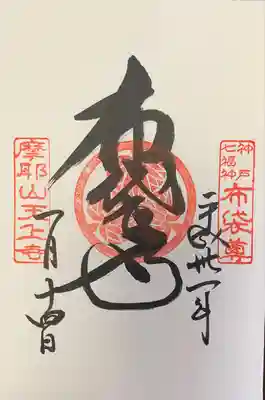 神戸
七福神
布袋尊
平成卅一年
布袋尊
一月十四日
摩耶山天上寺